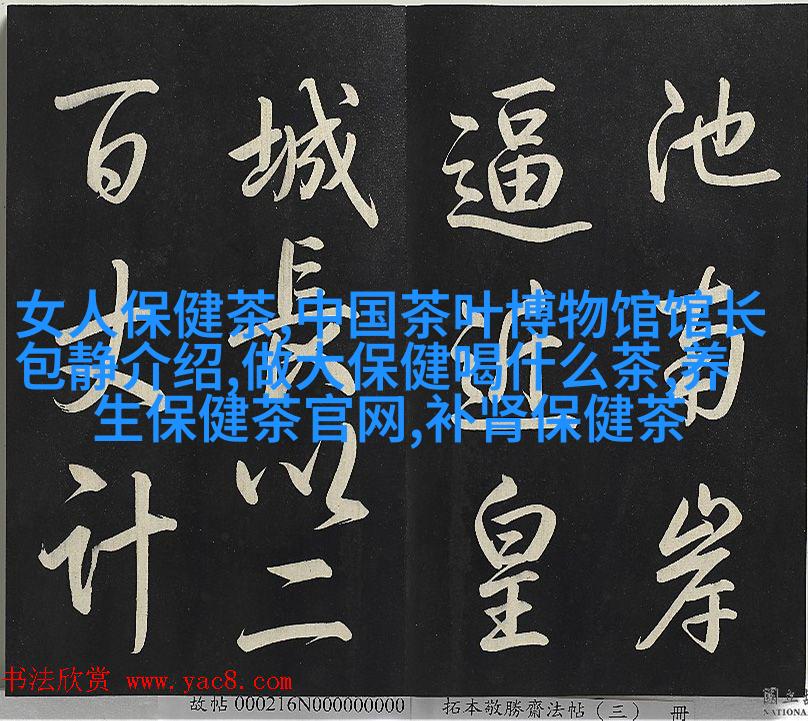 池南岸
逼近皇
城長以二
百丈計
女人保健茶,中国茶叶博物馆馆长
包静介绍,做大保健喝什么茶,养
生保健茶官网,补肾保健茶
书法欣赏 www.yac8.com
故帖 000216N000000000 拓本敬勝齋法帖（三） 冊
國立
NATIONA